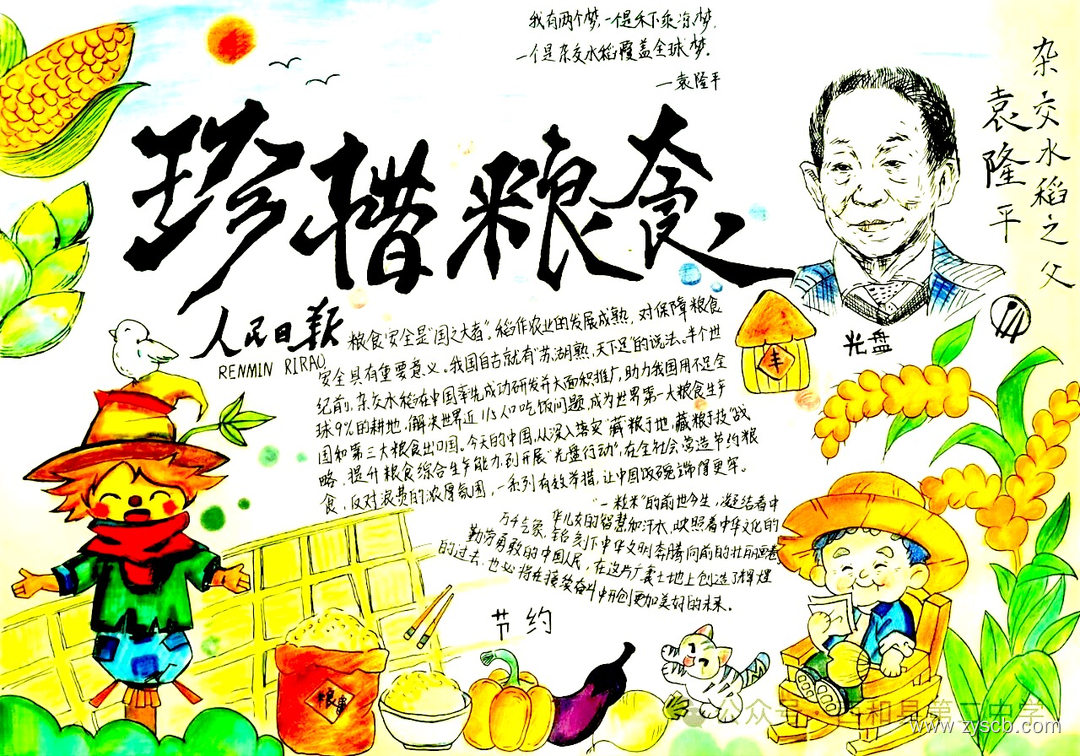 我有两个梦,一个是禾下乘凉梦,
一个是杂交水稻覆盖全球梦.
—袁隆平
杂交水稻之父
袁隆平
珍惜粮食
人民日报
RENMIN RIRAO
光盘
丰
粮食安全是“国之大者”,稻作农业的发展成熟,对保障粮食
安全具有重要意义。我国自古就有“苏湖熟,天下足”的说法。半个世
纪前,杂交水稻在中国率先成功研发并大面积推广,助力我国用不足全
球9%的耕地,解决世界近1/5人口吃饭问题,成为世界第一大粮食生产
国和第三大粮食出口国。今天的中国,从深入落实“藏粮于地、藏粮于技”战
略、提升粮食综合生产能力,到开展“光盘行动”、在全社会营造节约粮
食、反对浪费的浓厚氛围,一系列有效举措,让中国饭碗端得更牢。
“一粒米”的前世今生,凝结着中
华儿女的智慧和汗水,映照着中华文化的
万千气象,铭刻下中华文明奔腾向前的壮丽画卷
勤劳勇敢的中国人民,在这片广袤土地上创造了辉煌
的过去,也必将在接续奋斗中开创更加美好的未来。
节约
粮食
公众号
www.zyscb.com